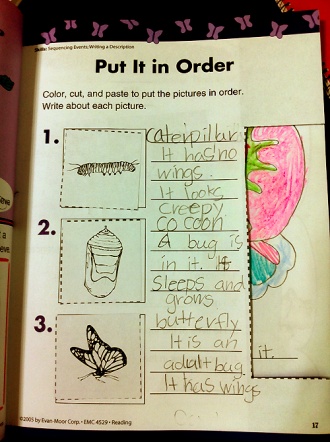 Skills: Sequencing Events; Writing a Description
Put It in Order
Color, cut, and paste to put the pictures in order.
Write about each picture.
1.
Caterpillar
It has no
wings.
It looks
creepy
2.
Cocoon
A bug is
in it. It
Sleeps and
grows
3.
butterfly
It is an
adualt bug
It has wings
it.
©2005 by Evan-Moor Corp. • EMC 4529 • Reading
17